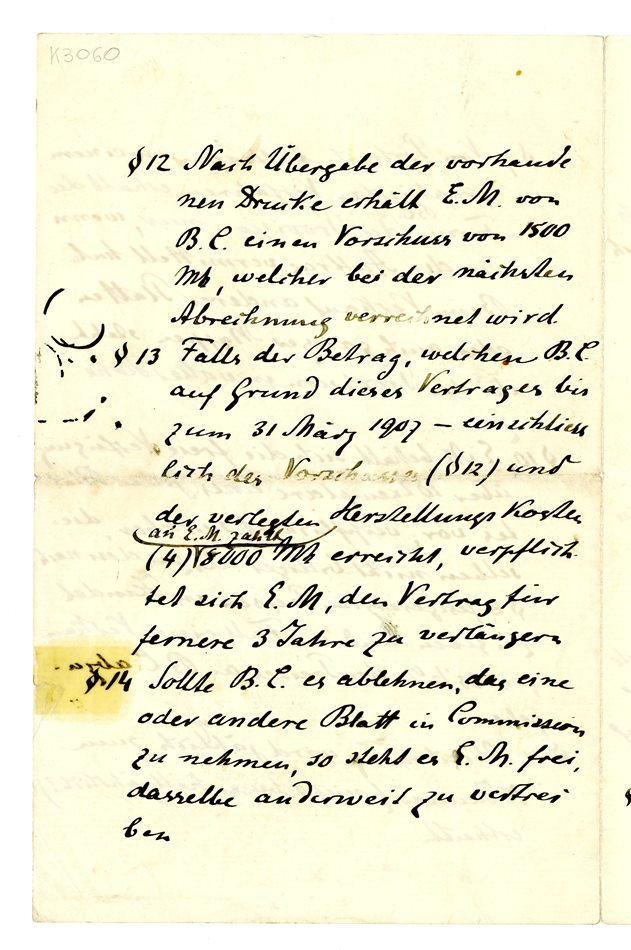 K3060
§ 12 Nach Übergabe der vorhande
nen Drucke erhält E. M. von
B. C. einen Vorschuss von 1500
Mk, welcher bei der nächsten
Abrechnung verrechnet wird.
§ 13 Falls der Betrag, welchen B. C.
auf Grund dieses Vertrages bis
zum 31 März 1907 – einschliess
lich des Vorschusses (§ 12) und
der verlegten Herstellungs Kosten
an E. M. zahlt
(4) 8000 Mk erreicht, verpflich
tet sich E. M, den Vertrag für
fernere 3 Jahre zu verlängern
§ 14 Sollte B. C. es ablehnen, das eine
oder andere Blatt in Commission
zu nehmen, so steht es E. M. frei,
dasselbe anderweit zu vertrei
ben